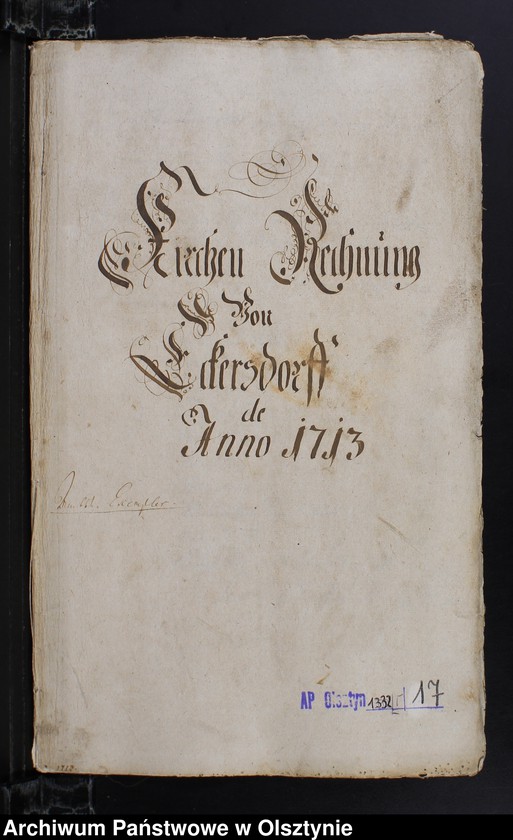 Kirchen Rechnüng
Von
Eckersdorff
de
Anno 1713
Exemplar.
AP Olsztyn 1332/ 17
1713
Archiwum Państwowe w Olsztynie